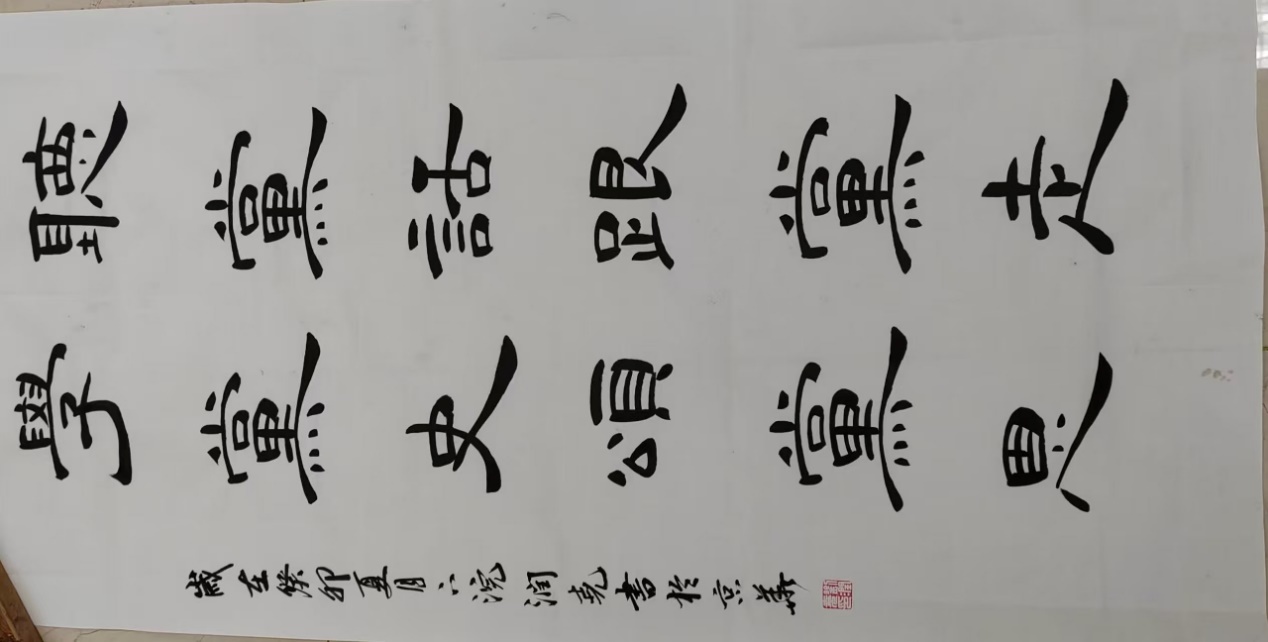 聽黨話跟黨走
學黨史頌黨恩
歲在癸卯夏月下浣潤書於京華